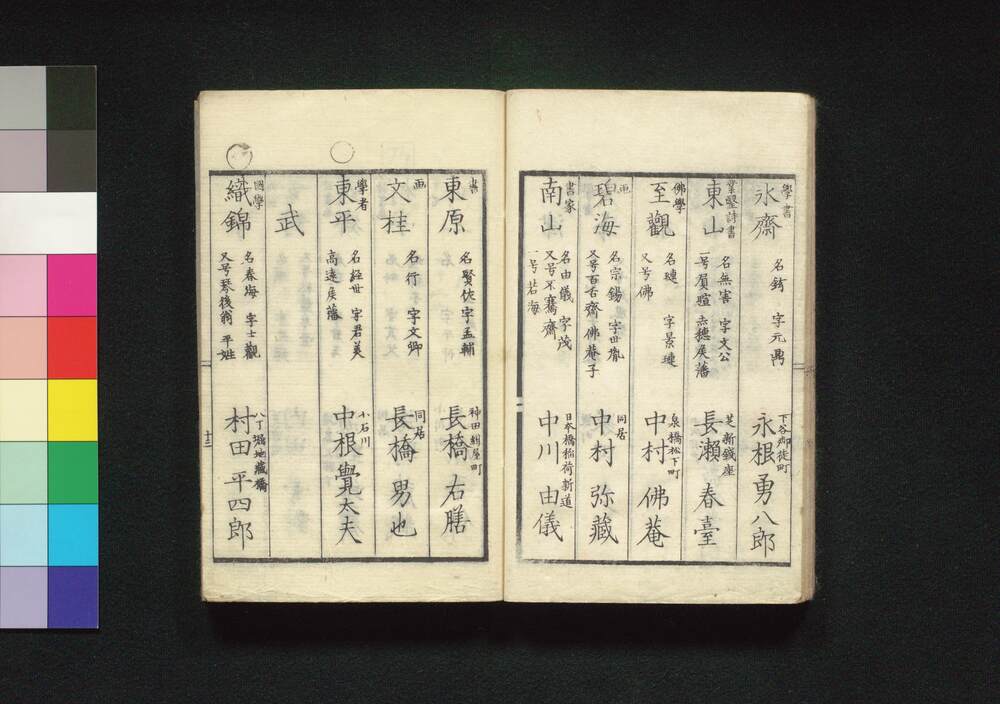 學書
氷齋
名鋳 字元鼎
下谷御徒町
永根勇八郎
業醫詩書
東山
名無害 字文公
一号負暄 赤穂侯藩
芝新錢座
長瀬春臺
佛學
至觀
名璉 字景璉
又号佛
泉橋松下町
中村佛菴
画
碧海
名宗錫 字世胤
又号百舌齋 佛菴子
同居
中村弥藏
書家
南山
名由儀 字茂
又号不騫齋
一号若海
日本橋稲荷新道
中川由儀
書
東原
名賢佐 字孟輔
神田紺屋町
長橋右膳
画
文桂
名行 字文卿
同居
長橋男也
學者
東平
名経世 字君美
高遠侯藩
小石川
中根覺太夫
武
國學
織錦
名春海 字士觀
又号琴後翁 平姓
八丁堀地藏橋
村田平四郎
十二